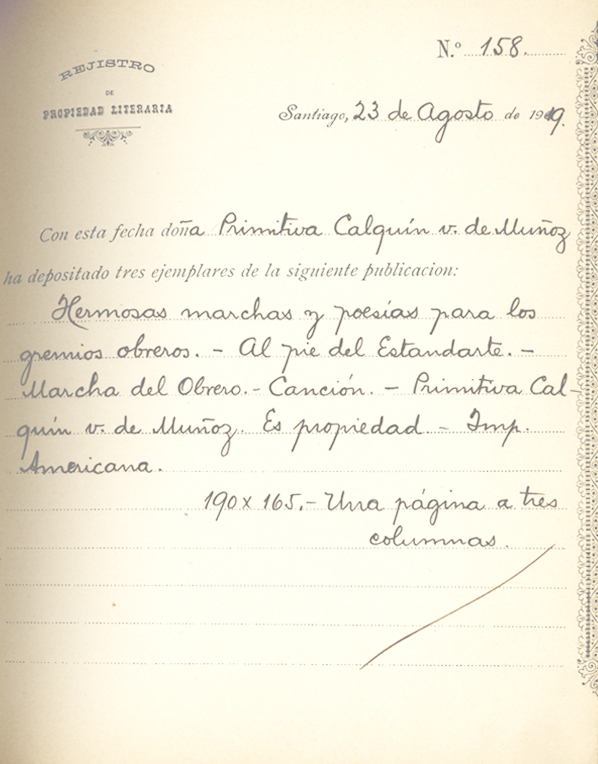 N.º 158.
REJISTRO
DE
PROPIEDAD LITERARIA
Santiago, 23 de Agosto de 1909.
Con esta fecha doña Primitiva Calquín v. de Muñoz
ha depositado tres ejemplares de la siguiente publicacion:
Hermosas marchas y poesías para los
gremios obreros. - Al pie del Estandarte. -
Marcha del Obrero. - Canción. - Primitiva Cal-
quín v. de Muñoz. Es propiedad - Imp.
Americana.
190 x 165. - Una página a tres
columnas.